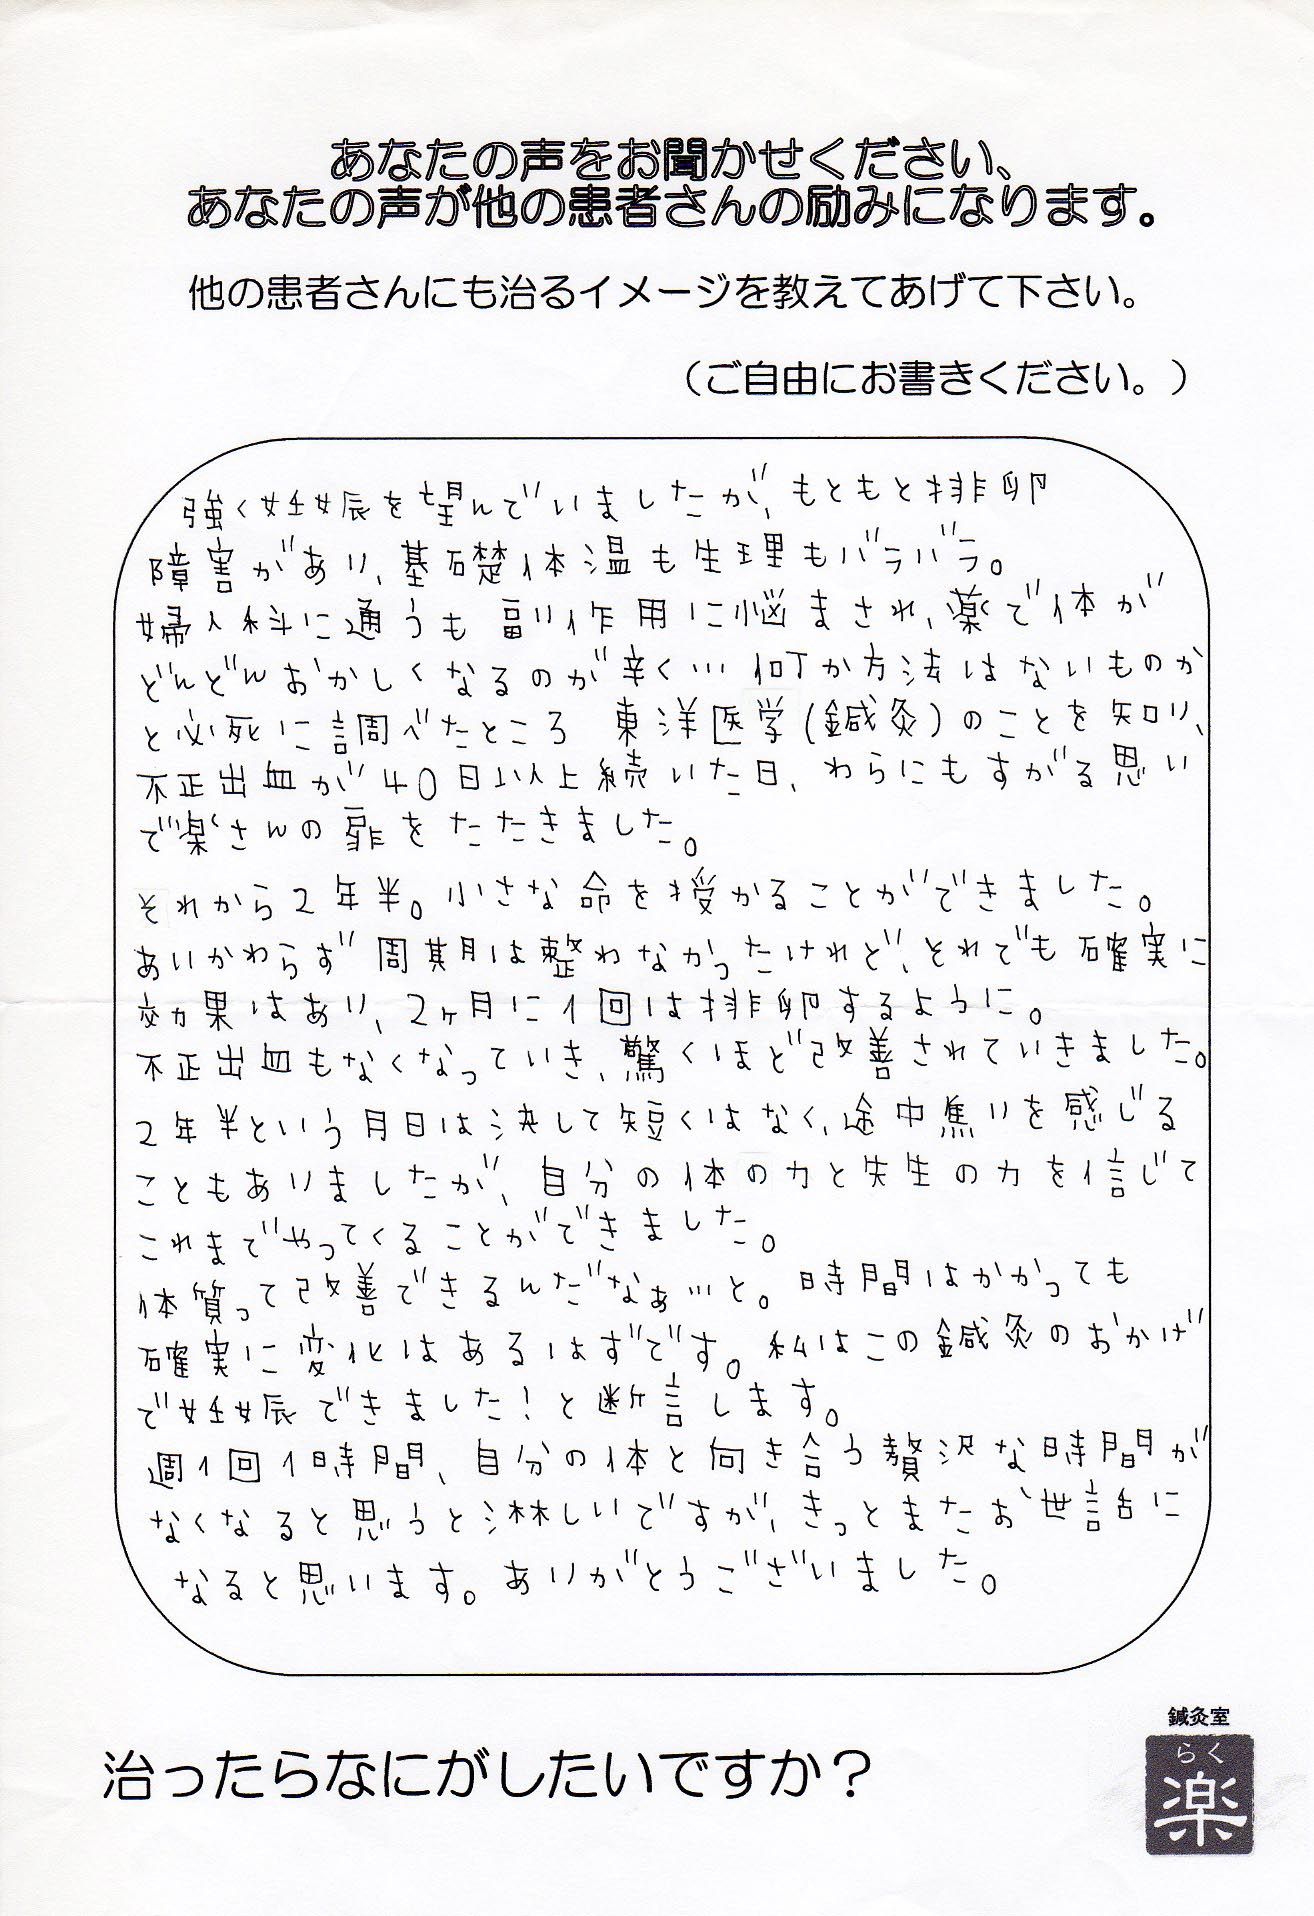 あなたの声をお聞かせください、
あなたの声が他の患者さんの励みになります。
他の患者さんにも治るイメージを教えてあげて下さい。
（ご自由にお書きください。）
強く妊娠を望んでいましたが、もともと排卵
障害があり、基礎体温も生理もバラバラ。
婦人科に通うも副作用に悩まされ、薬で体が
どんどんおかしくなるのが辛く…何か方法はないものか
と必死に調べたところ 東洋医学(鍼灸)のことを知り、
不正出血が40日以上続いた日、わらにもすがる思い
で楽さんの扉をたたきました。
それから2年半。小さな命を授かることができました。
あいかわらず周期は整わなかったけれど、それでも確実に
効果はあり、2ヶ月に1回は排卵するように。
不正出血もなくなっていき、驚くほど改善されていきました。
2年半という月日は決して短くはなく、途中焦りを感じる
こともありましたが、自分の体の力と先生の力を信じて
これまでやってくることができました。
体質って改善できるんだなぁ…と。時間はかかっても
確実に変化はあるはずです。私はこの鍼灸のおかげ
で妊娠できました！と断言します。
週1回1時間、自分の体と向き合う贅沢な時間が
なくなると思うと淋しいですが、きっとまたお世話に
なると思います。ありがとうございました。
治ったらなにがしたいですか？
鍼灸室
らく
楽